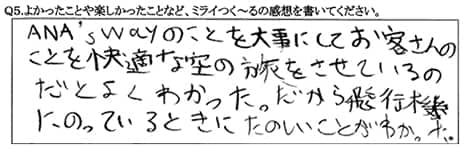 Q5.よかったことや楽しかったことなど、ミライつく～るの感想を書いてください。
ANA's Wayのことを大事にしてお客さんの
ことを快適な空の旅をさせているの
だとよくわかった。だから飛行機
にのっているときにたのしいことがわかった。